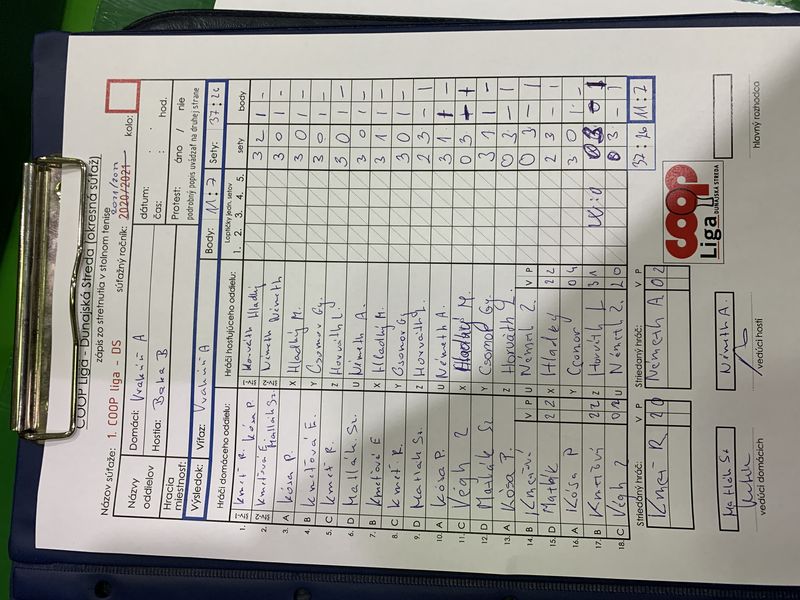 COOP Liga - Dunajská Streda (okresná súťaž)
zápis zo stretnutia v stolnom tenise
Názov súťaže: 1. COOP liga - DS súťažný ročník: 2020/2021 kolo:
Názvy oddielov Domáci: Vrakúň A dátum: . .
Hostia: Baka B čas: : hod.
Hracia miestnosť: Protest: áno / nie
podrobný popis uvádzať na druhej strane
Výsledok: Víťaz: Vrakúň A Body: 11:7 sety: 37:26
Hráči domáceho oddielu: Hráči hosťujúceho oddielu: Loptičky jedn. setov sety body
1. 2. 3. 4. 5.
1. Kmeť R. Kósa P. Horváth Hladký 3 2 1 -
2. Kmeťová E. Matlák Sz. Németh Németh 3 0 1 -
3. A Kósa P. X Hladký M. 3 0 1 -
4. B Kmeťová E. Y Csomor Gy. 3 0 1 -
5. C Kmeť R. Z Horváth L. 3 0 1 -
6. D Matlák Sz. U Németh A. 3 0 1 -
7. B Kmeťová E X Hladký M. 3 1 1 -
8. C Kmeť R. Y Csomor Gy 3 0 1 -
9. D Matlák Sz. Z Horváth L. 2 3 - 1
10. A Kósa P. U Németh A. 3 1
11. C Végh Z X Hladký M. 0 3
12. D Matlák Sz Y Csomor Gy. 3 1 1 -
13. A Kósa P. Z Horváth L. 0 3 - 1
14. B Kmeťová V P U Németh Z. V P 0 3 - 1
15. D Matlák 2 2 X Hladký 2 2 2 3 - 1
16. A Kósa P Y Csomor 0 4 3 0 1 -
17. B Kmeťová 2 2 Z Horváth L 3 1 W:0
18. C Végh Z U Németh Z. 2 0 0 3 - 1
37:26 11:7
Striedaný hráč: V P Striedaný hráč: V P
Kmeť R 2 0 Németh A 0 2
COOP
Liga DUNAJSKÁ STREDA
Matlák Sz Németh A.
vedúci domácich vedúci hostí hlavný rozhodca